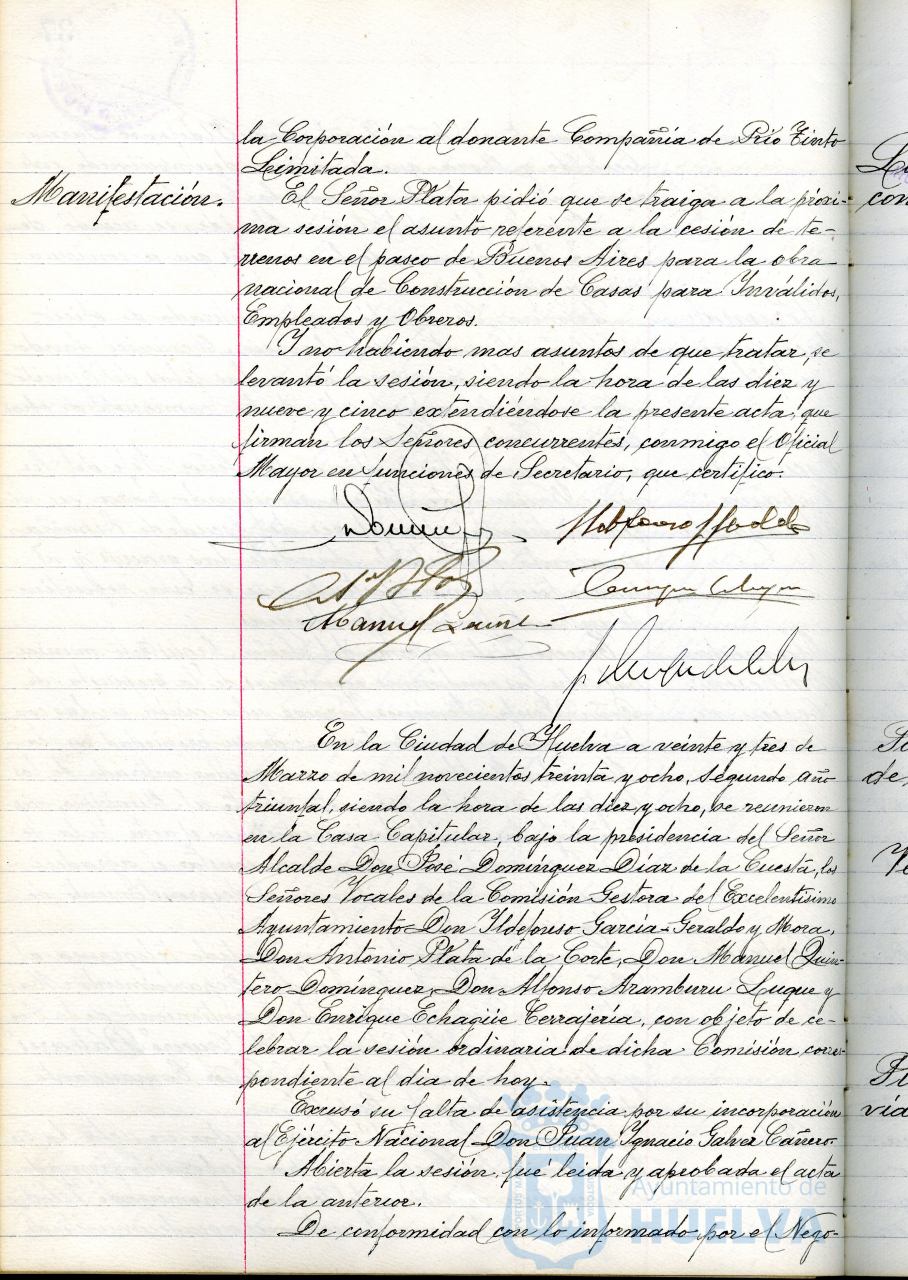 la Corporación al donante Compañía de Río Tinto
Limitada.
Manifestación.
El Señor Plata pidió que se traiga a la próxi-
ma sesión el asunto referente a la cesión de te-
rrenos en el paseo de Buenos Aires para la obra
nacional de Construcción de Casas para Inválidos,
Empleados y Obreros.
Y no habiendo mas asuntos de que tratar, se
levantó la sesión, siendo la hora de las diez y
nueve y cinco extendiéndose la presente acta, que
firman los Señores concurrentes, conmigo el Oficial
Mayor en funciones de Secretario, que certifico.
Manuel
En la Ciudad de Huelva a veinte y tres de
Marzo de mil novecientos treinta y ocho, segundo año
triunfal, siendo la hora de las diez y ocho, se reunieron
en la Casa Capitular, bajo la presidencia del Señor
Alcalde Don José Domínguez Díaz de la Cuesta, los
Señores Vocales de la Comisión Gestora del Excelentísimo
Ayuntamiento Don Ildefonso García-Geraldo y Mora,
Don Antonio Plata de la Corte, Don Manuel Quin-
tero Domínguez, Don Alfonso Aramburu Luque y
Don Enrique Echagüe Terrajería, con objeto de ce-
lebrar la sesión ordinaria de dicha Comisión corres-
pondiente al dia de hoy.
Excusó su falta de asistencia por su incorporación
al Ejército Nacional Don Juan Ignacio Galvez Cañero.
Abierta la sesión, fué leida y aprobada el acta
de la anterior.
De conformidad con lo informado por el Nego-
Ayuntamiento de
HUELVA